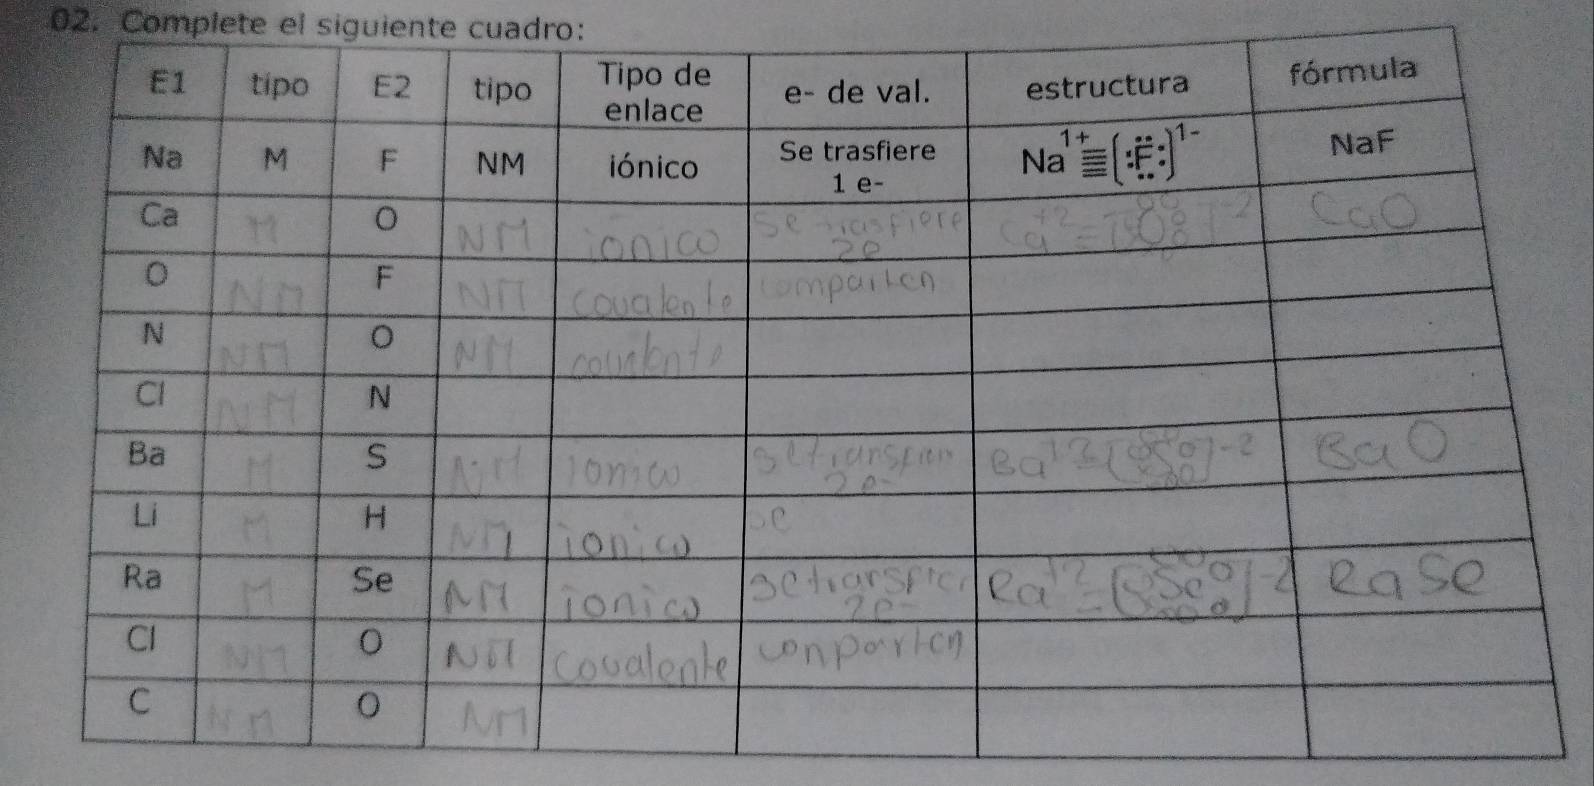 02. Complete el siguiente cuadro:
E1 tipo E2 tipo Tipo de enlace e- de val. estructura fórmula
Na M F NM iónico Se trasfiere 1 e- Na 1+ ≡ (:F:) 1- NaF
Ca M O NM ionico Se trasfiere 2e Ca+2 = [O]-2 CaO
O NM F NM covalente comparten
N NM O NM covalente
Cl NM N
Ba M S NM ionico 2e- Ba+2 [S]-2 BaO
Li M H NM ionico se
Ra M Se NM ionico 2e- Ra+2 = [Se]-2 RaSe
Cl NM O NM covalente conparten
C NM O NM